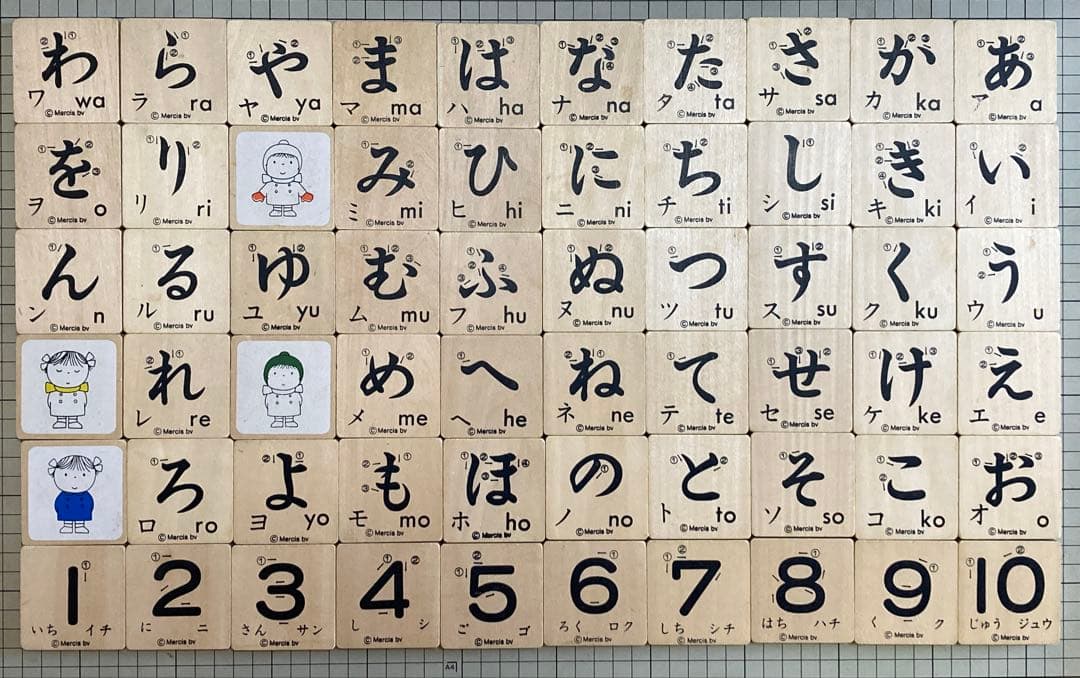 わ ら や ま は な た さ か あ
ワ wa ラ ra ヤ ya マ ma ハ ha ナ na タ ta サ sa カ ka ア a
© Mercis bv © Mercis bv © Mercis bv © Mercis bv © Mercis bv © Mercis bv © Mercis bv © Mercis bv © Mercis bv © Mercis bv
を り み ひ に ち し き い
ヲ o リ ri ミ mi ヒ hi ニ ni チ ti シ si キ ki イ i
© Mercis bv © Mercis bv © Mercis bv © Mercis bv © Mercis bv © Mercis bv © Mercis bv © Mercis bv © Mercis bv
ん る ゆ む ふ ぬ つ す く う
ン n ル ru ユ yu ム mu フ hu ヌ nu ツ tu ス su ク ku ウ u
© Mercis bv © Mercis bv © Mercis bv © Mercis bv © Mercis bv © Mercis bv © Mercis bv © Mercis bv © Mercis bv © Mercis bv
れ め へ ね て せ け え
レ re メ me ヘ he ネ ne テ te セ se ケ ke エ e
© Mercis bv © Mercis bv © Mercis bv © Mercis bv © Mercis bv © Mercis bv © Mercis bv © Mercis bv
ろ よ も ほ の と そ こ お
ロ ro ヨ yo モ mo ホ ho ノ no ト to ソ so コ ko オ o
© Mercis bv © Mercis bv © Mercis bv © Mercis bv © Mercis bv © Mercis bv © Mercis bv © Mercis bv © Mercis bv
1 2 3 4 5 6 7 8 9 10
いち イチ に ニ さん サン し シ ご ゴ ろく ロク しち シチ はち ハチ く ク じゅう ジュウ
© Mercis bv © Mercis bv © Mercis bv © Mercis bv © Mercis bv © Mercis bv © Mercis bv © Mercis bv © Mercis bv © Mercis bv
A4